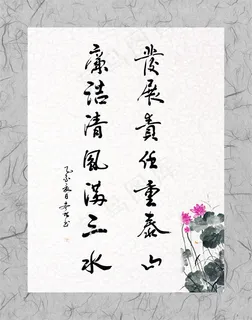 發展責任重泰山
廉洁清風满三水